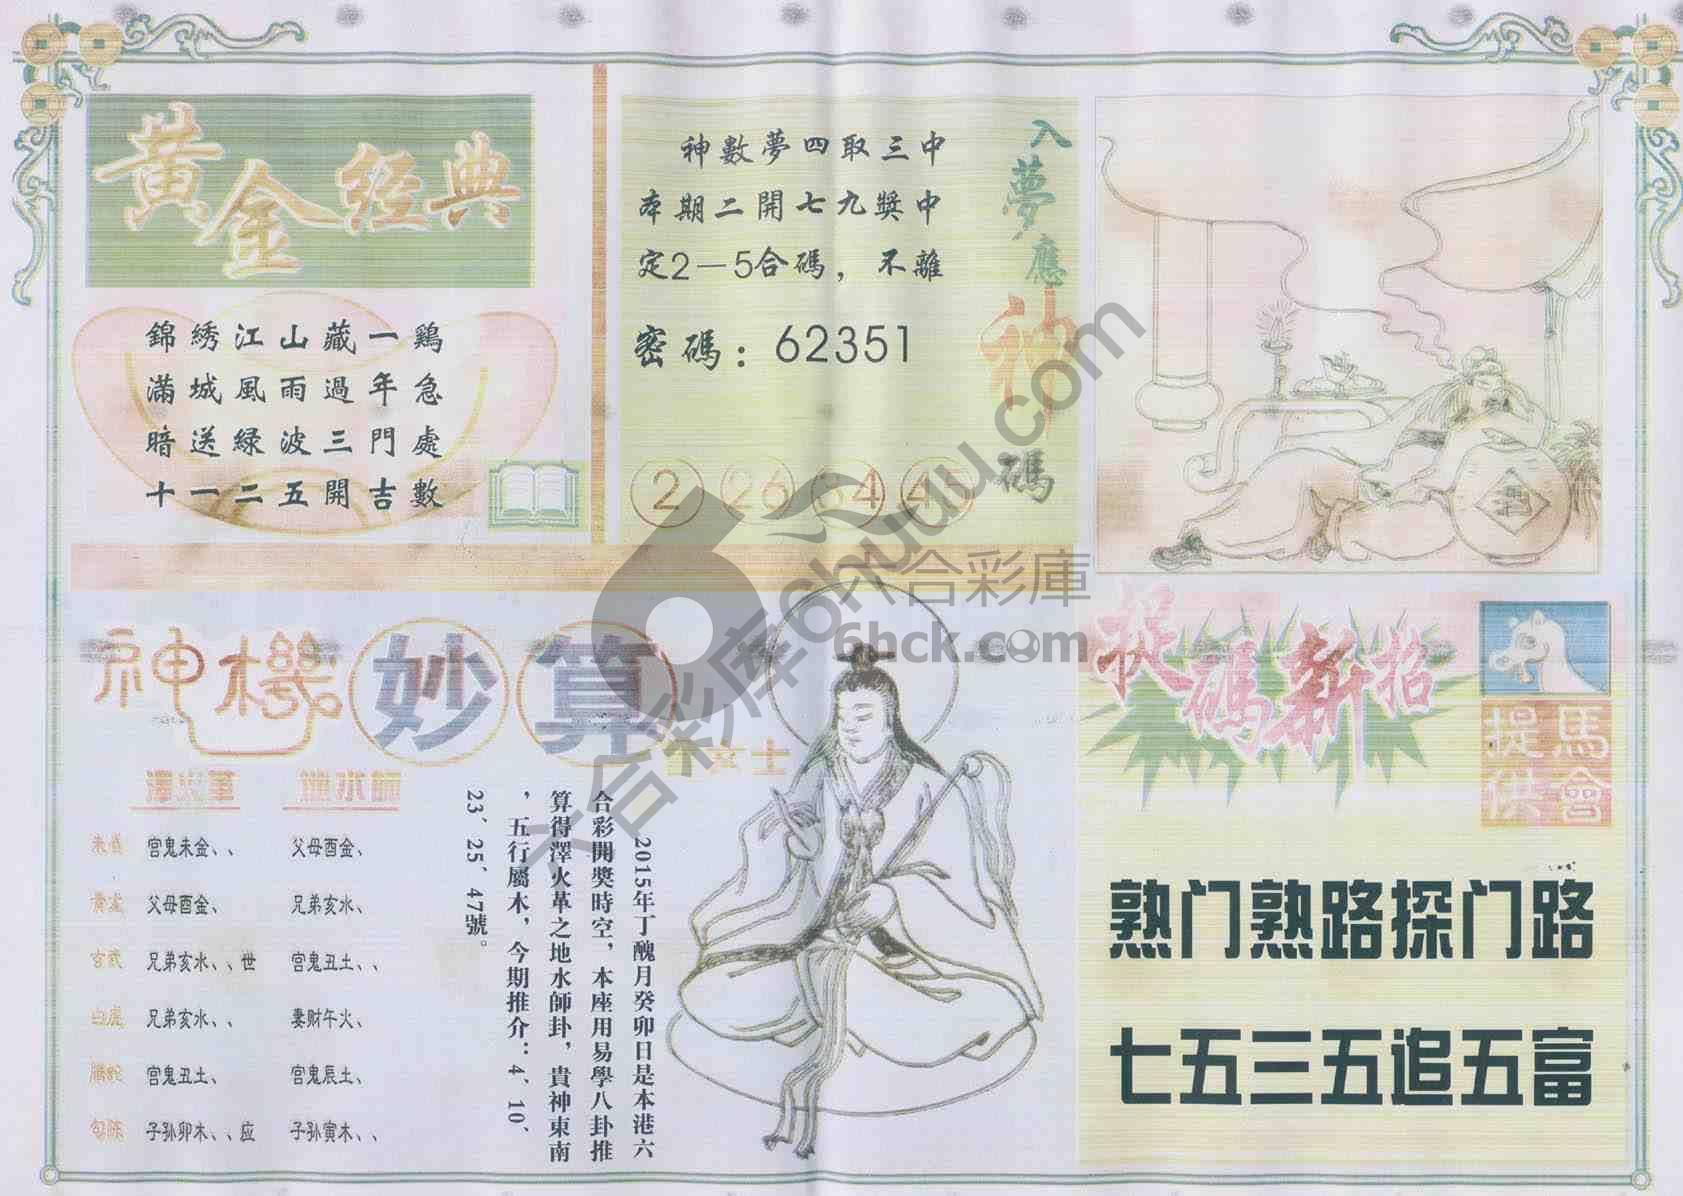 黃金經典
錦綉江山藏一鷄
滿城風雨過年急
暗送緑波三門處
十一二五開吉數
入夢應神碼
神數夢四取三中
本期二開七九獎中
定2—5合碼，不離
密碼：62351
2 26 34 45
酒
神機妙算
女士
澤火革 地水師
朱雀 宫鬼未金、、 父母酉金、
青龙 父母酉金、 兄弟亥水、
玄武 兄弟亥水、、世 宫鬼丑土、、
白虎 兄弟亥水、、 妻财午火、
腾蛇 宫鬼丑土、 宫鬼辰土、
勾陈 子孙卯木、、应 子孙寅木、、
2015年丁醜月癸卯日是本港六
合彩開獎時空，本座用易學八卦推
算得澤火革之地水師卦，貴神東南
，五行屬木，今期推介：4、10、
23、25、47號。
捉碼新招
馬會提供
熟门熟路探门路
七五三五追五富
六合彩库6huuu.com
六合彩庫
6hck.com